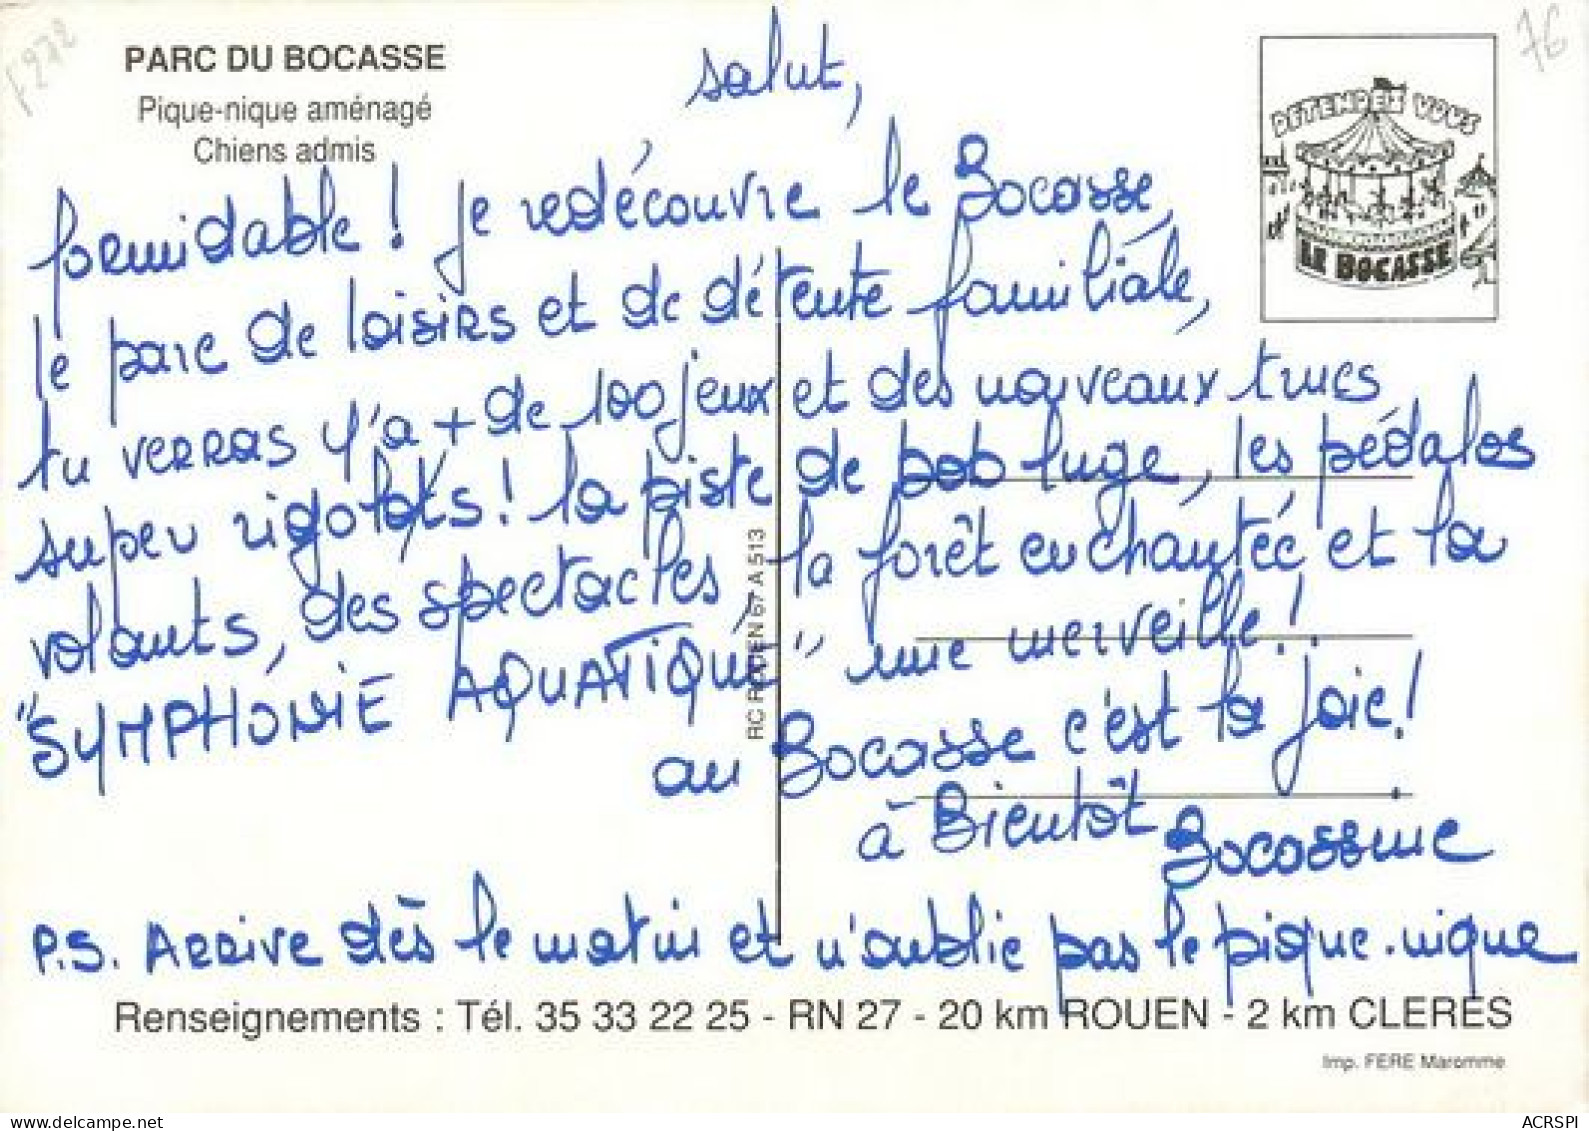 F272
76
PARC DU BOCASSE
Pique-nique aménagé
Chiens admis
DETENDEZ VOUS
LE BOCASSE
salut,
formidable ! je redécouvre le Bocasse,
le parc de loisirs et de détente familiale,
tu verras y'a + de 100 jeux et des nouveaux trucs
super rigolots ! la piste de bob luge, les pédalos
volants, des spectacles, la forêt enchantée et la
"SYMPHONIE AQUATIQUE" une merveille !
au Bocasse c'est la joie !
à Bientôt
Bocassine
P.S. Arrive dès le matin et n'oublie pas le pique-nique
RC ROUEN 67 A 513
Renseignements : Tél. 35 33 22 25 - RN 27 - 20 km ROUEN - 2 km CLERES
Imp. FERE Maromme
ACRSPI